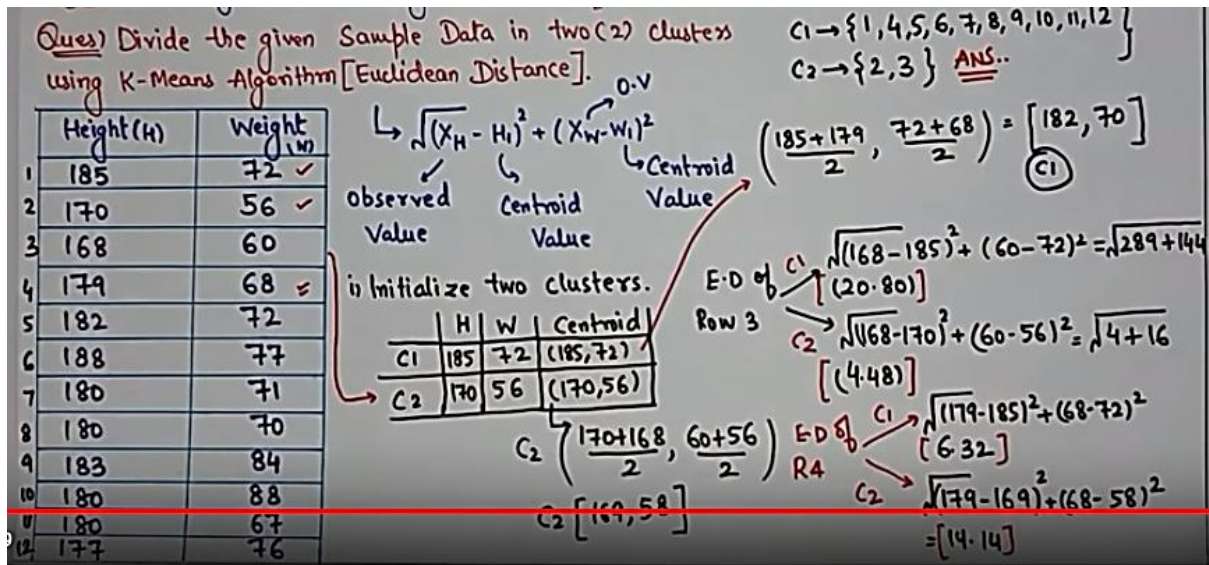 Ques) Divide the given Sample Data in two(2) clusters
using K-Means Algorithm [Euclidean Distance].
C1→{1,4,5,6,7,8,9,10,11,12}
C2→{2,3} ANS..
Height(H) Weight(W)
1 185 72 ✓
2 170 56 ✓
3 168 60
4 179 68
5 182 72
6 188 77
7 180 71
8 180 70
9 183 84
10 180 88
11 180 67
12 177 76
O.V
↳ √(X_H - H₁)² + (X_W - W₁)²
Observed Value
Centroid Value
Centroid Value
i) Initialize two clusters.
H W Centroid
C1 185 72 (185,72)
C2 170 56 (170,56)
C2 (170+168/2, 60+56/2)
C2 [169,58]
(185+179/2, 72+68/2) = [182,70]
C1
E.D of Row 3
C1 √(168-185)² + (60-72)² = √289+144
[(20.80)]
C2 √(168-170)² + (60-56)² = √4+16
[(4.48)]
E.D of R4
C1 √(179-185)² + (68-72)²
[6.32]
C2 √(179-169)² + (68-58)²
=[14.14]